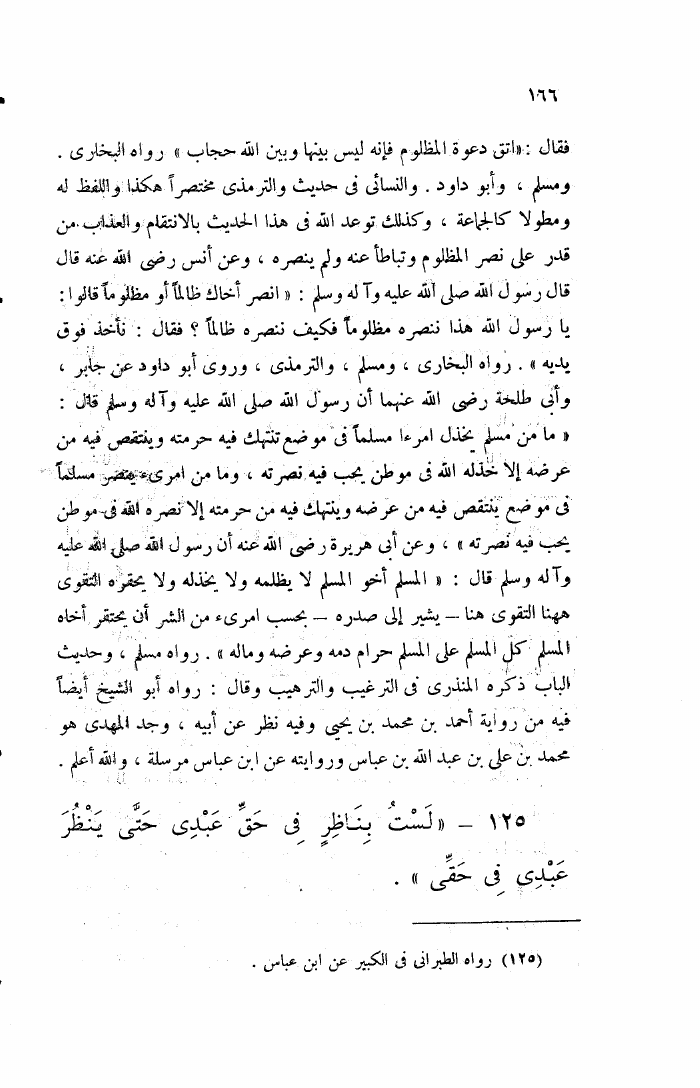 ١٦٦
فقال : «اتق دعوة المظلوم فإنه ليس بينها وبين الله حجاب » رواه البخارى .
ومسلم ، وأبو داود . والنسائى فى حديث والترمذى مختصراً هكذا واللفظ له
ومطولا كالجماعة ، وكذلك توعد الله فى هذا الحديث بالانتقام والعذاب من
قدر على نصر المظلوم وتباطأ عنه ولم ينصره ، وعن أنس رضى الله عنه قال
قال رسول الله صلى الله عليه وآله وسلم : « انصر أخاك ظالماً أو مظلوماً قالوا :
يا رسول الله هذا ننصره مظلوماً فكيف ننصره ظالماً ؟ فقال : نأخذ فوق
يديه » . رواه البخارى ، ومسلم ، والترمذى ، وروى أبو داود عن جابر ،
وأبى طلحة رضى الله عنهما أن رسول الله صلى الله عليه وآله وسلم قال :
« ما من مسلم يخذل امرءا مسلماً فى موضع تنتهك فيه حرمته وينتقص فيه من
عرضه إلا خذله الله فى موطن يحب فيه نصرته ، وما من امرىء ينصر مسلماً
فى موضع ينتقص فيه من عرضه وينتهك فيه من حرمته إلا نصره الله فى موطن
يحب فيه نصرته » ، وعن أبى هريرة رضى الله عنه أن رسول الله صلى الله عليه
وآله وسلم قال : « المسلم أخو المسلم لا يظلمه ولا يخذله ولا يحقره التقوى
ههنا التقوى هنا – يشير إلى صدره – بحسب امرىء من الشر أن يحتقر أخاه
المسلم كل المسلم على المسلم حرام دمه وعرضه وماله » . رواه مسلم ، وحديث
الباب ذكره المنذرى فى الترغيب والترهيب وقال : رواه أبو الشيخ أيضاً
فيه من رواية أحمد بن محمد بن يحيى وفيه نظر عن أبيه ، وجد المهدى هو
محمد بن على بن عبد الله بن عباس وروايته عن ابن عباس مرسلة ، والله أعلم .
١٢٥ – « لَسْتُ بِنَاظِرٍ فِى حَقِّ عَبْدِى حَتَّى يَنْظُرَ
عَبْدِى فِى حَقِّى » .
(١٢٥) رواه الطبرانى فى الكبير عن ابن عباس .